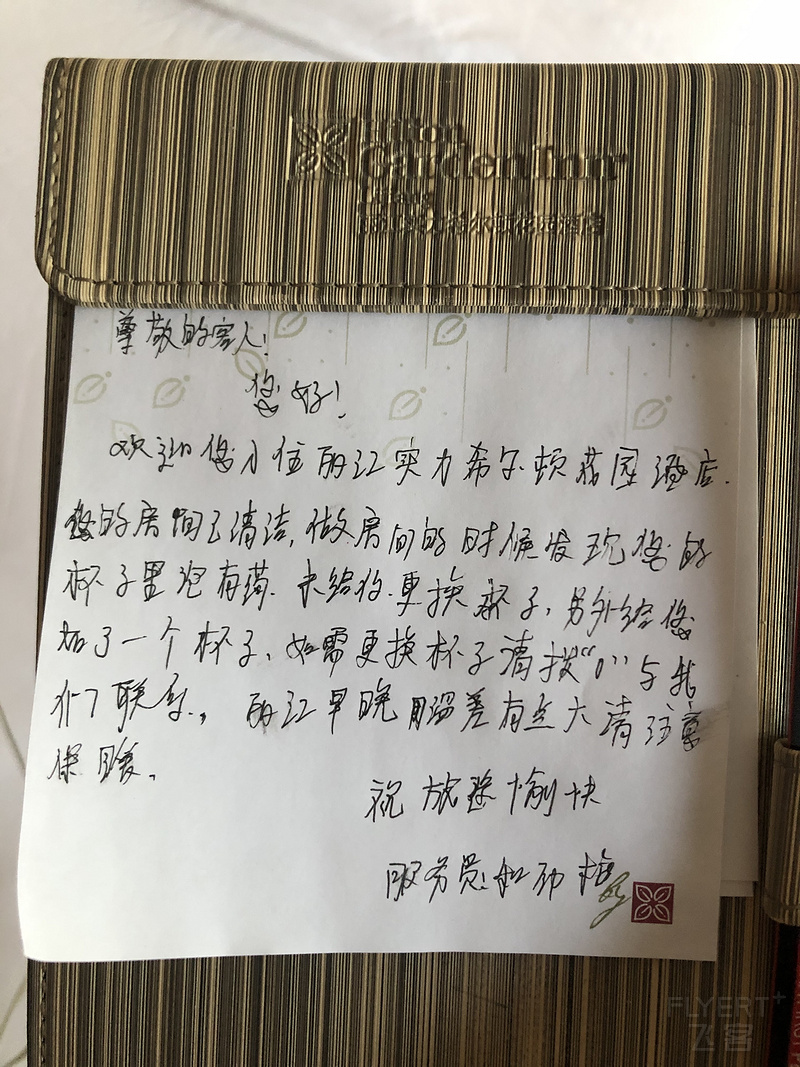 Hilton
Garden Inn
Lijiang
丽江实力希尔顿花园酒店
尊敬的客人!
您好!
欢迎您入住丽江实力希尔顿花园酒店.
您的房间已清洁,做房间的时候发现您的
杯子里泡有药.未给你.更换杯子,另外给您
加了一个杯子、如需更换杯子请拨"0"与我
们联系., 丽江早晚温差有点大请注意
保暖,
祝旅途愉快
服务员:和
FLYERT+
飞客